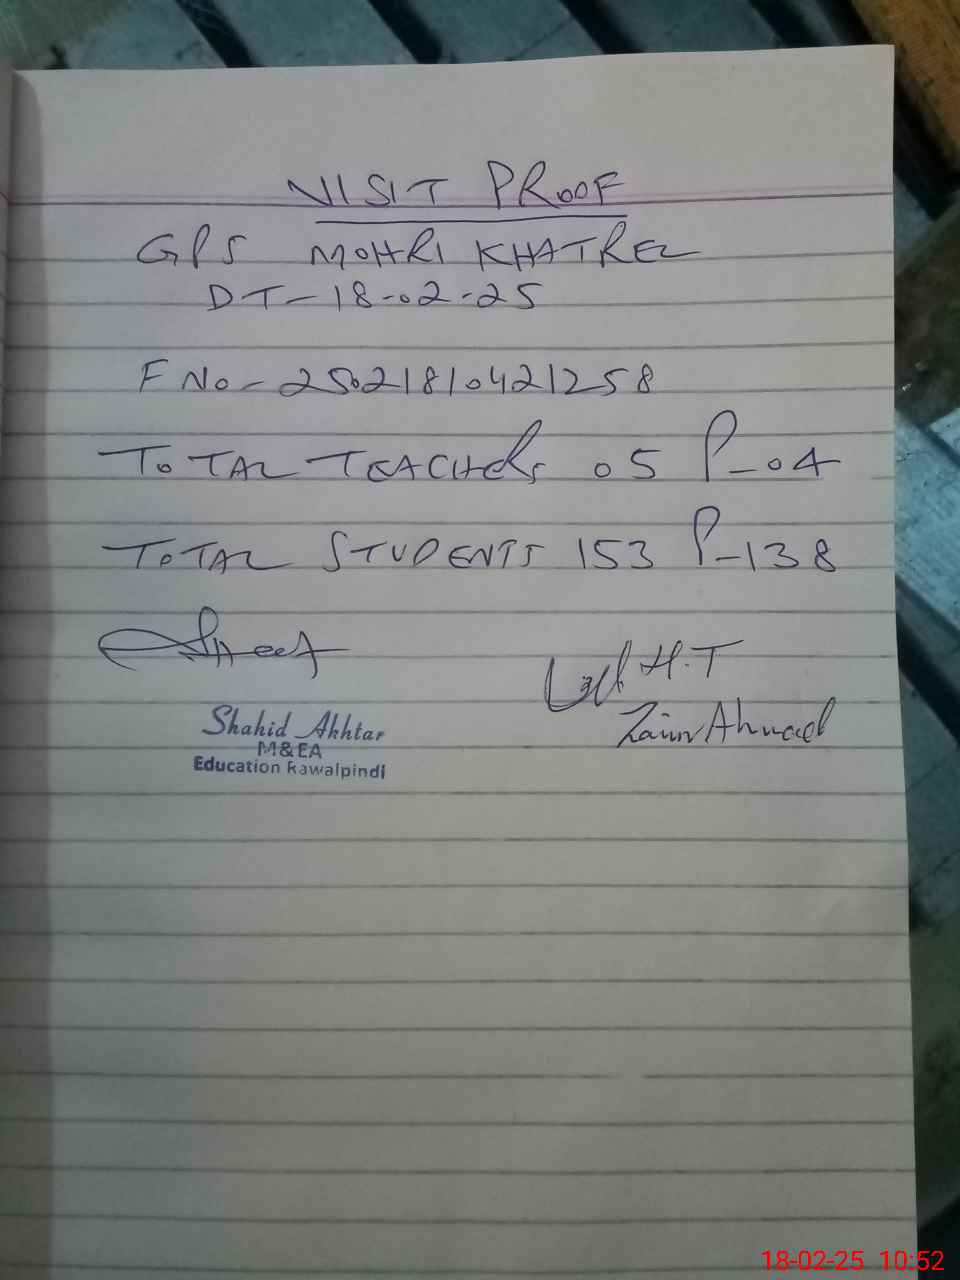 VISIT PROOF
GPS MOHRI KHATREL
DT-18-02-25
F No-25021810421258
TOTAL TEACHERS 05 P-04
TOTAL STUDENTS 153 P-138
H.T
Zain Ahmad
Shahid Akhtar
M&EA
Education Rawalpindi
18-02-25 10:52